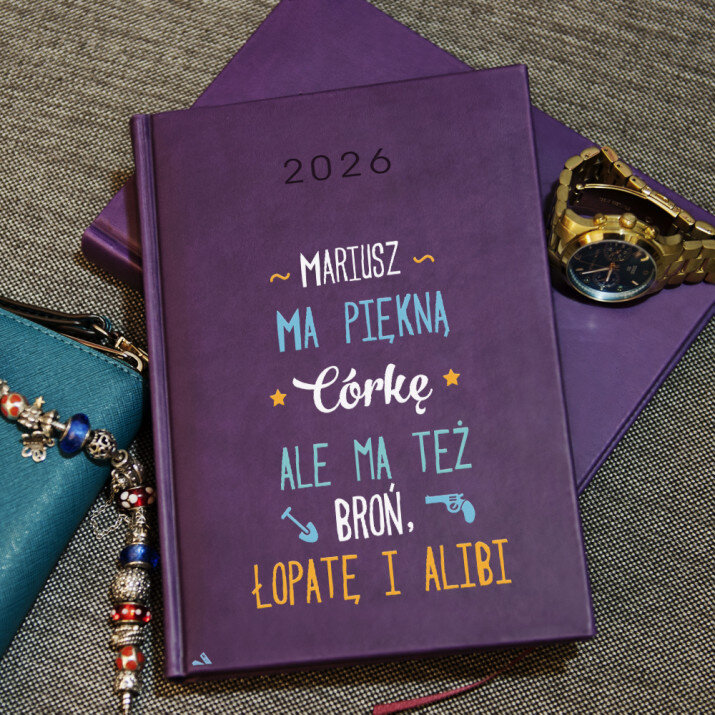 2026
MARIUSZ
MA PIĘKNĄ
Córkę
ALE MA TEŻ
BROŃ,
ŁOPATĘ I ALIBI